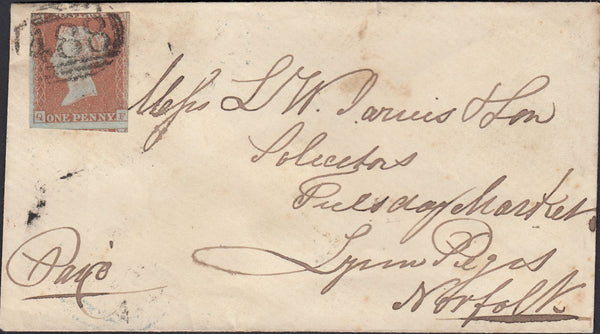 488
ONE PENNY
Messrs L W Jarvis & Son
Solicitors
Tuesday Market
Lynn Regis
Norfolk
Paid